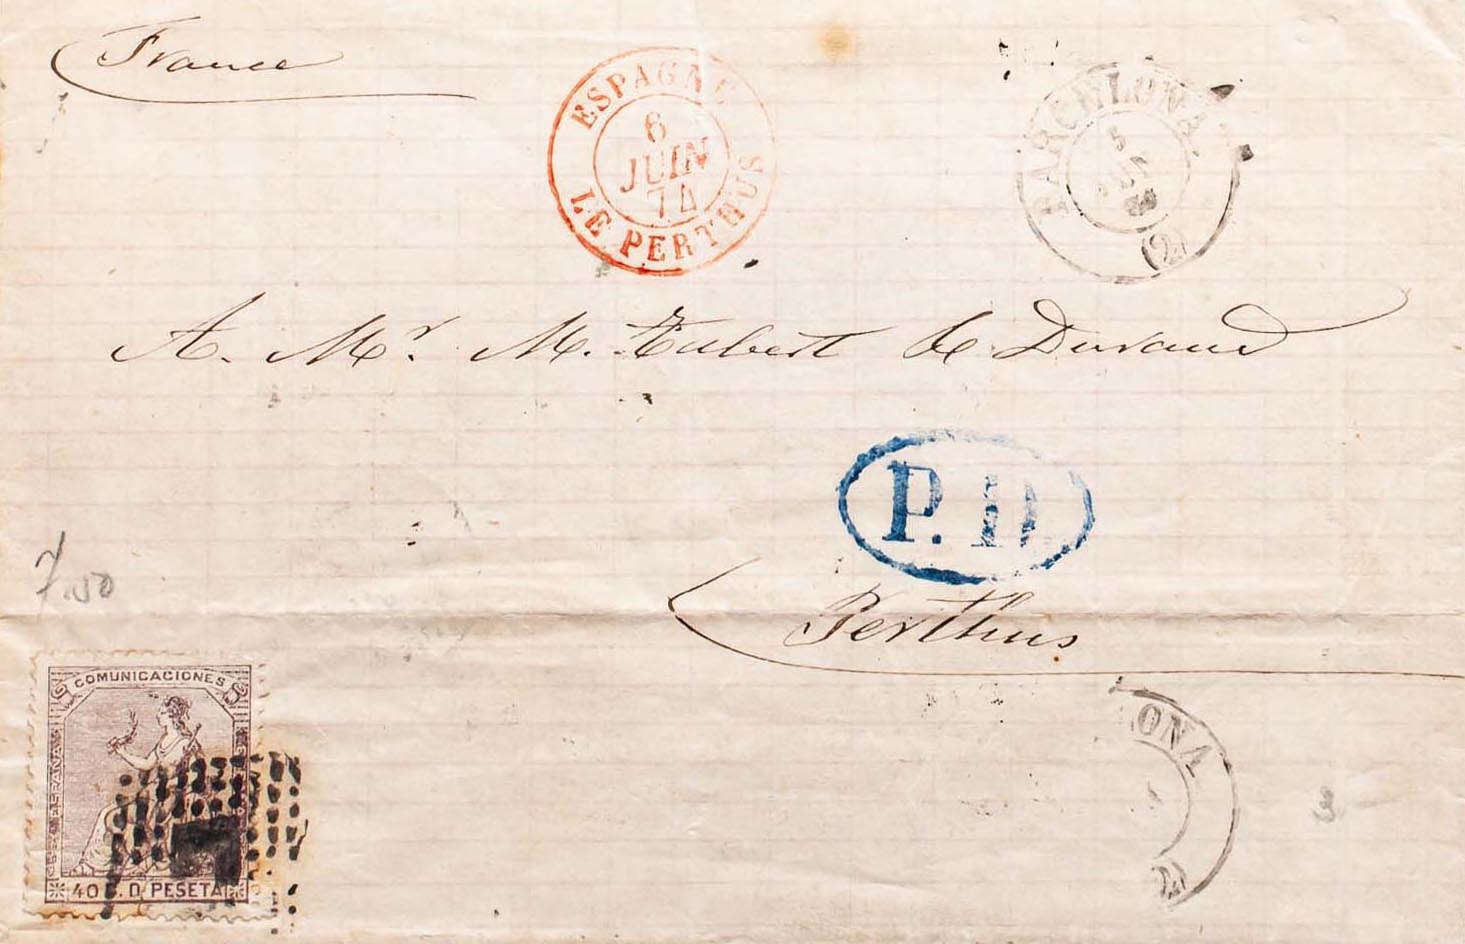 France
ESPAGNE
6
JUIN
74
LE PERTHUS
BARCELONA
5
JUN
(2)
A. Mr. M. Hubert de Durand
P.D.
Perthus
7.50
COMUNICACIONES
ESPAÑA
40 C. D. PESETA
ONA
(2)